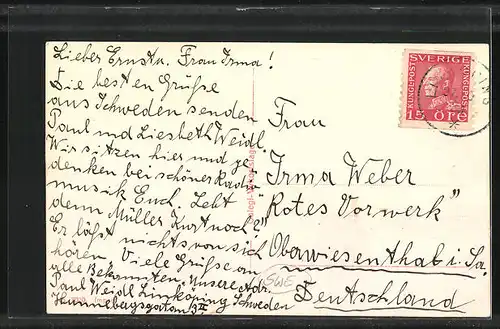 Lieber Ernst u. Frau Irma!
Die besten Grüße
aus Schweden senden
Paul und Liesbeth Weidl.
Wir sitzen hier und ge-
denken bei schöner Radio-
musik Euch. Lebt
denn Müller Kurt noch?
Er läßt nichts von sich
hören. Viele Grüße an
alle Bekannten. Unsere Adr.
Paul Weidl Linköping Schweden
SVERIGE
KUNGSPOST
KUNGSPOST
15 ÖRE
Frau
Irma Weber
"Rotes Vorwerk"
Oberwiesenthal i. Sa.
Deutschland
SWE